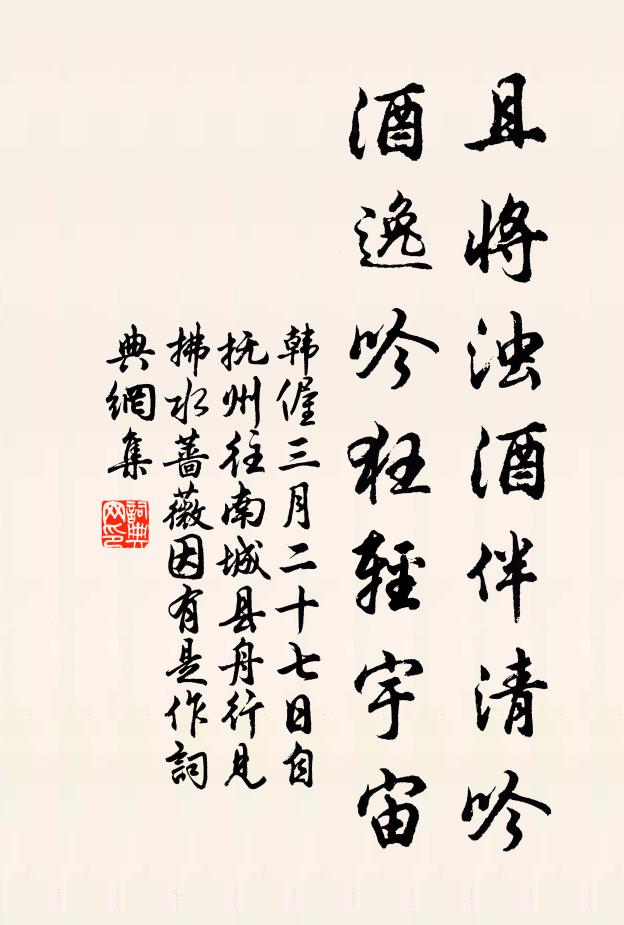 且将浊酒伴清吟
酒逸吟狂轻宇宙
韩偓三月二十七日自
抚州往南城县舟行见
拂水蔷薇因有是作词
典网集
词典网印